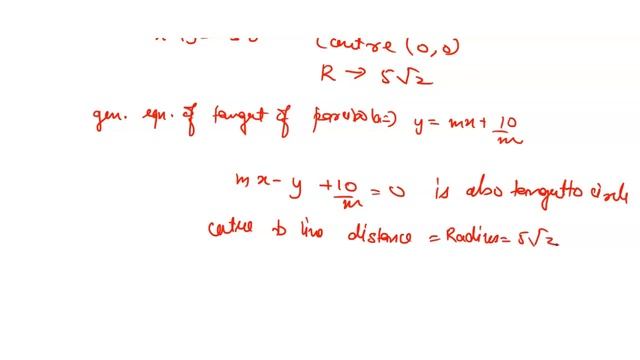 Centre (0,0)
R → 5√2
gen. eqn. of tangent of parabola⇒ y = mx + 10/m
mx - y + 10/m = 0 is also tangent to circle
centre to line distance = Radius = 5√2